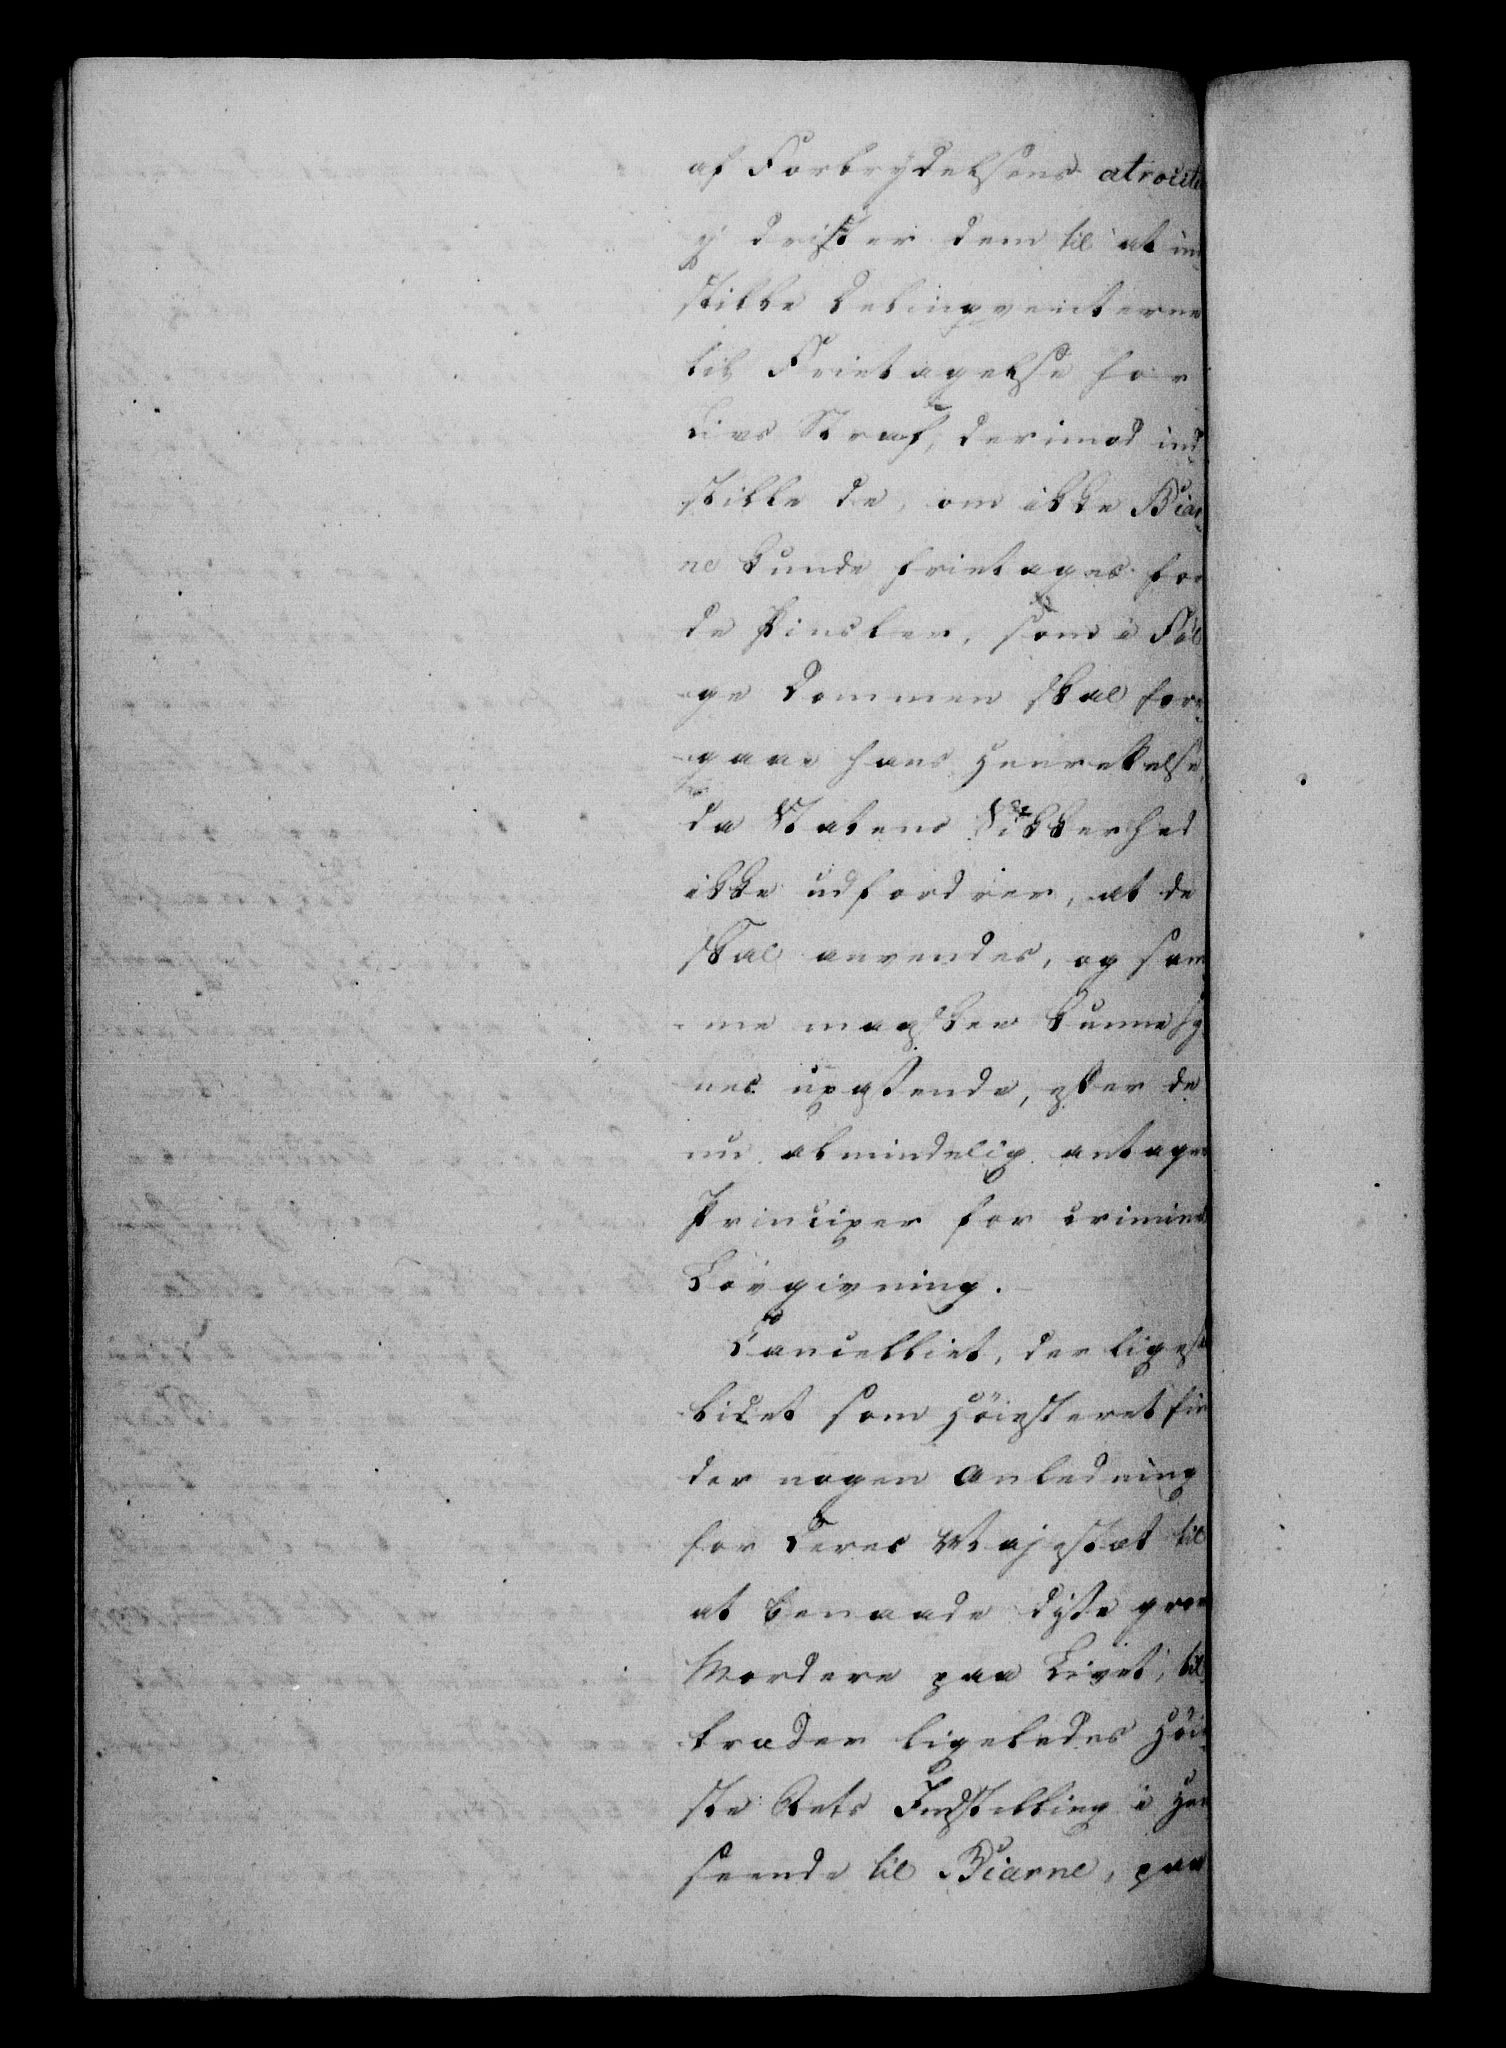 af Forbrydelsens atrocite
ej drister dem til at ind-
stille Delinqventerne
til Frietagelse for
Livs Straf, derimod ind-
stille de, om ikke Biar-
ne kunde frietages for
de Pinsler, som i Føl-
ge Dommen skal for-
gaae hans Henrettelse,
da Statens Sikkerhed
ikke udfordrer, at de
skal anvendes, og sam-
me maaskee kunne sy-
nes upassende, efter de
nu almindelig antagne
Principer for criminel
Lovgivning.
Cancelliet, der ligesaa
lidet som Höiesteret fin-
der nogen Anledning
for Deres Majestæt til
at benaade disse grove
Mordere paa Livet, til-
træder ligeledes Höie-
ste Rets Indstilling i Hen-
seende til Biarne, paa